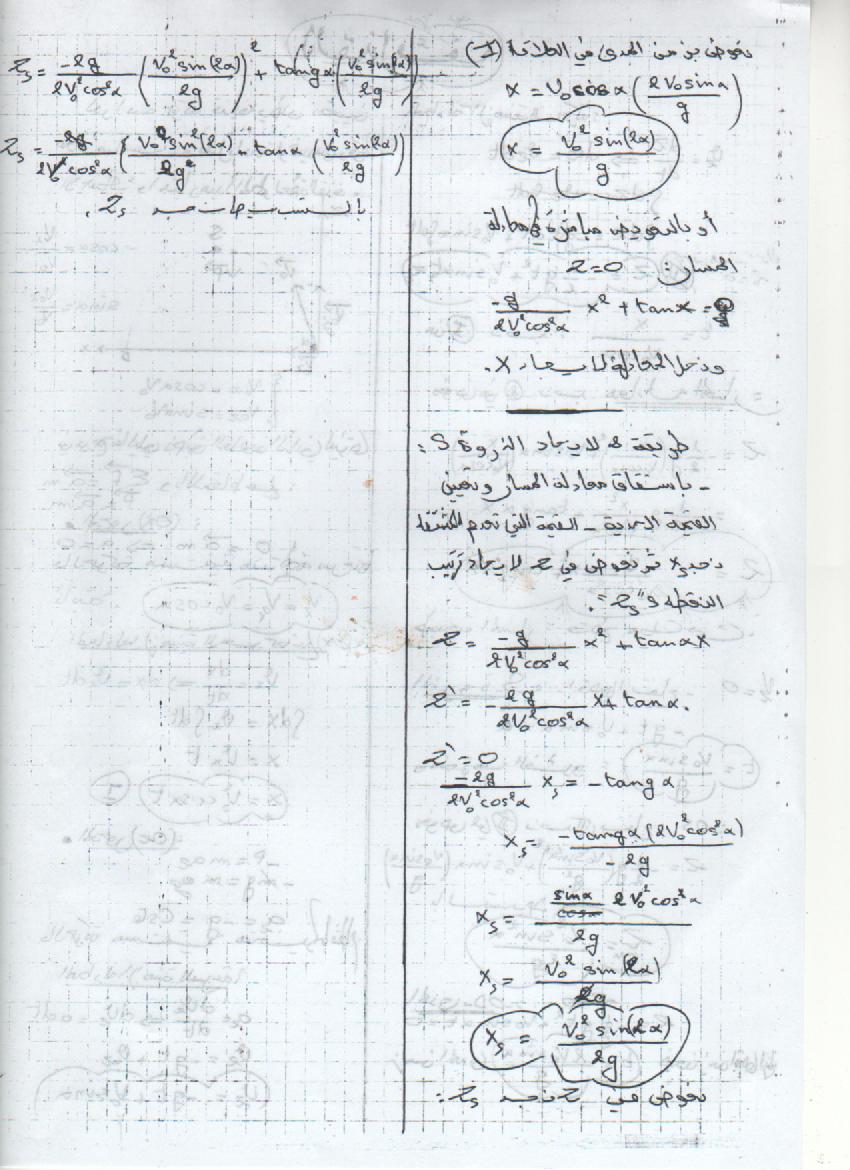 نعوض بزمن المدى في العلاقة (I)
x = V₀cosα (2V₀sinα / g)
x = V₀² sin(2α) / g
أو بالتعويض مباشرة في معادلة
المسار: z=0
-g / 2V₀²cos²α x² + tanαx = 0
وندخل المعادلة لايجاد x.
طريقة 2 لايجاد الذروة S:
- باشتقاق معادلة المسار وتعيين
القيمة الحدية - القيمة التي تعدم المشتقة
نجد xₛ ثم نعوض في z لايجاد ترتيب
النقطة "zₛ".
z = -g / 2V₀²cos²α x² + tanαx
z' = - 2g / 2V₀²cos²α x + tanα.
z' = 0
-2g / 2V₀²cos²α xₛ = -tangα
xₛ = -tangα(2V₀²cos²α) / -2g
xₛ = sinα/cosα 2V₀²cos²α / 2g
xₛ = V₀² sin(2α) / 2g
xₛ = V₀² sin(2α) / 2g
نعوض في z نجد zₛ:
zₛ = -2g / 2V₀²cos²α (V₀² sin(2α) / 2g)² + tangα (V₀² sin(2α) / 2g)
zₛ = -2g / 2V₀²cos²α (V₀⁴ sin²(2α) / 2g²) + tanα (V₀² sin(2α) / 2g)
zₛ.